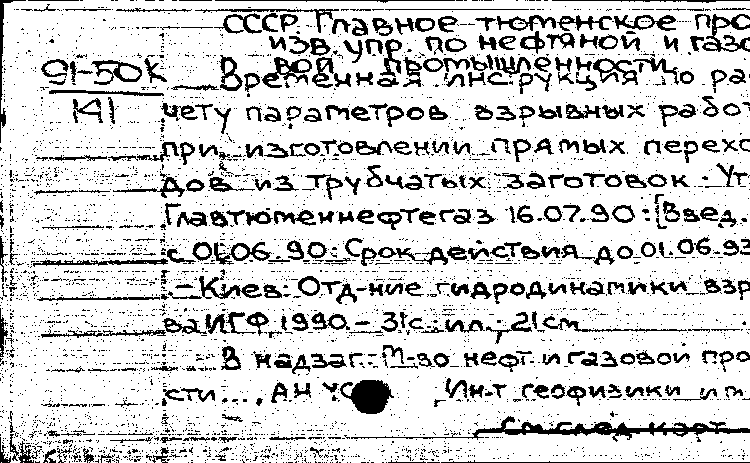 СССР. Главное тюменское про
изв. упр. по нефтяной и газо
вой промышленности.
91-50К
141
Временная инструкция по ра
чету параметров взрывных работ
при изготовлении прямых перехо
дов из трубчатых заготовок. Ут
Главтюменнефтегаз 16.07.90: [Введ.
с 01.06.90: Срок действия до 01.06.93
.-Киев: Отд-ние гидродинамики взр
ва ИГФ, 1990. - 31с.: ил.; 21см
В надзаг.: М-во нефт. и газовой про
сти..., АН Ин-т геофизики
См. след. карт.